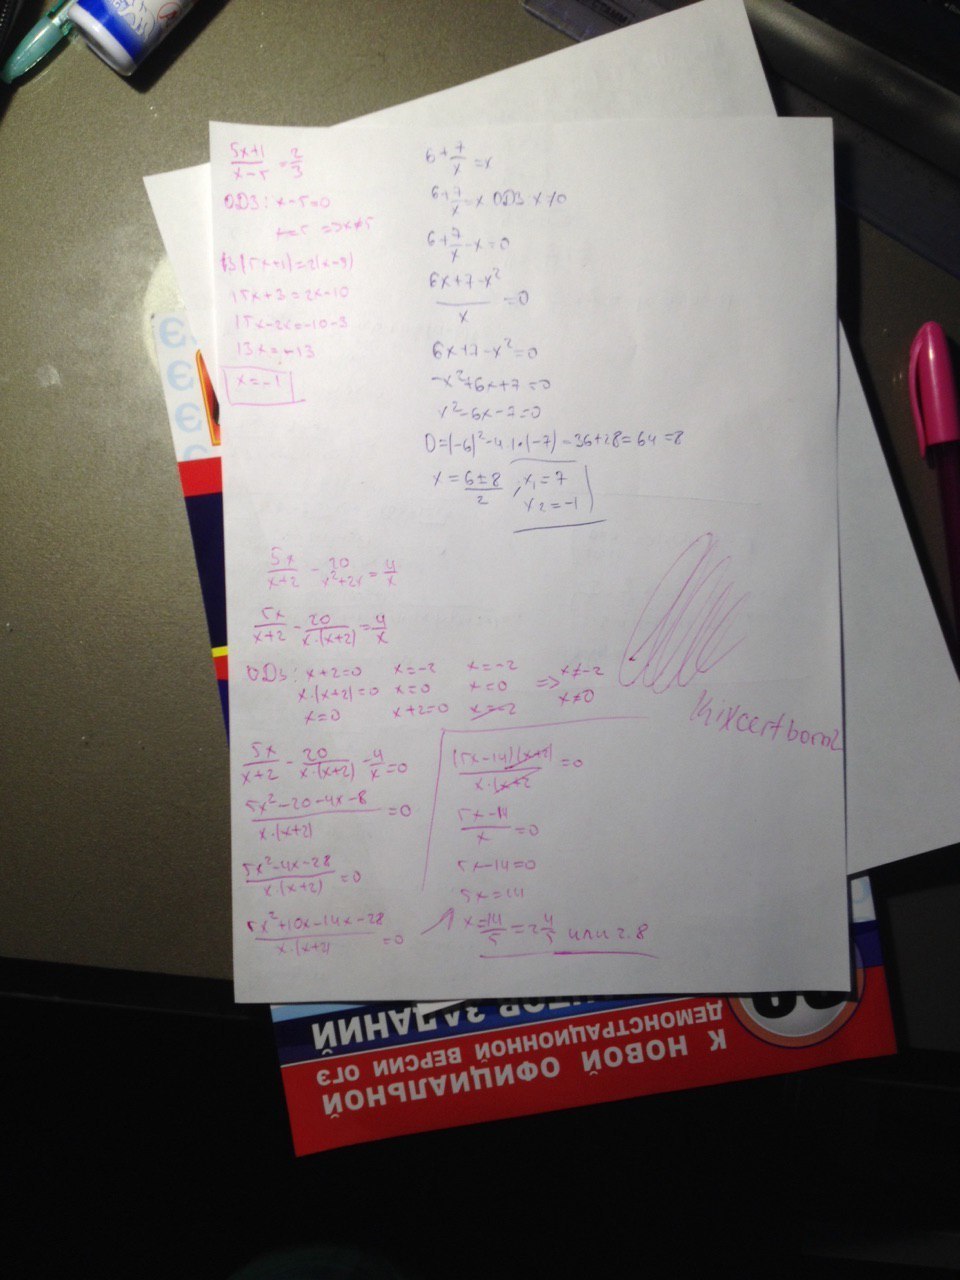 5x+1/x-5 = 2/3
ОДЗ: x-5=0
x=5 => x≠5
3(5x+1)=2(x-5)
15x+3=2x-10
15x-2x=-10-3
13x=-13
x=-1
6+7/x=x
6+7/x=x ОДЗ x≠0
6+7/x-x=0
6x+7-x²/x=0
6x+7-x²=0
-x²+6x+7=0
x²-6x-7=0
D=(-6)²-4·1·(-7)=36+28=64=8
x=6±8/2, x₁=7
x₂=-1
5x/x+2 - 20/x²+2x = 4/x
5x/x+2 - 20/x·(x+2) = 4/x
ОДЗ: x+2=0 x=-2 x=-2 => x≠-2
x·(x+2)=0 x=0 x=0 x≠0
x=0 x+2=0 x=-2
5x/x+2 - 20/x·(x+2) - 4/x=0
5x²-20-4x-8/x·(x+2)=0
5x²-4x-28/x·(x+2)=0
5x²+10x-14x-28/x·(x+2)=0
(5x-14)(x+2)/x·(x+2)=0
5x-14/x=0
5x-14=0
5x=14
x=14/5=2 4/5 или 2.8
К НОВОЙ ОФИЦИАЛЬНОЙ
ДЕМОНСТРАЦИОННОЙ ВЕРСИИ ОГЭ
ЗАДАНИЙ